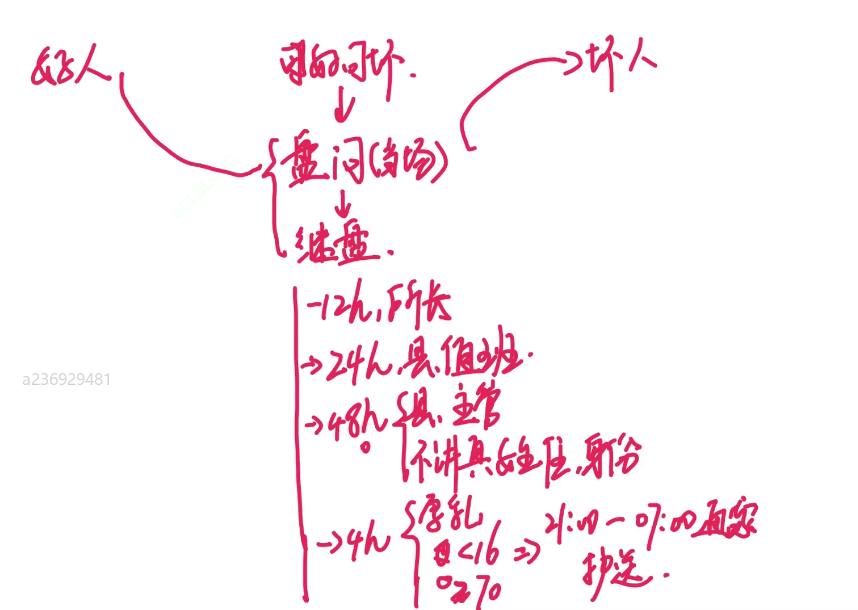 好人
可好可坏.
坏人
盘问(当场)
继盘.
-12h,所长
→24h,县,值班.
→48h
县、主管
不讲真姓住,身份
→4h
孕乳
<16 =>
≥70
21:00-07:00回家
抄送.
a236929481